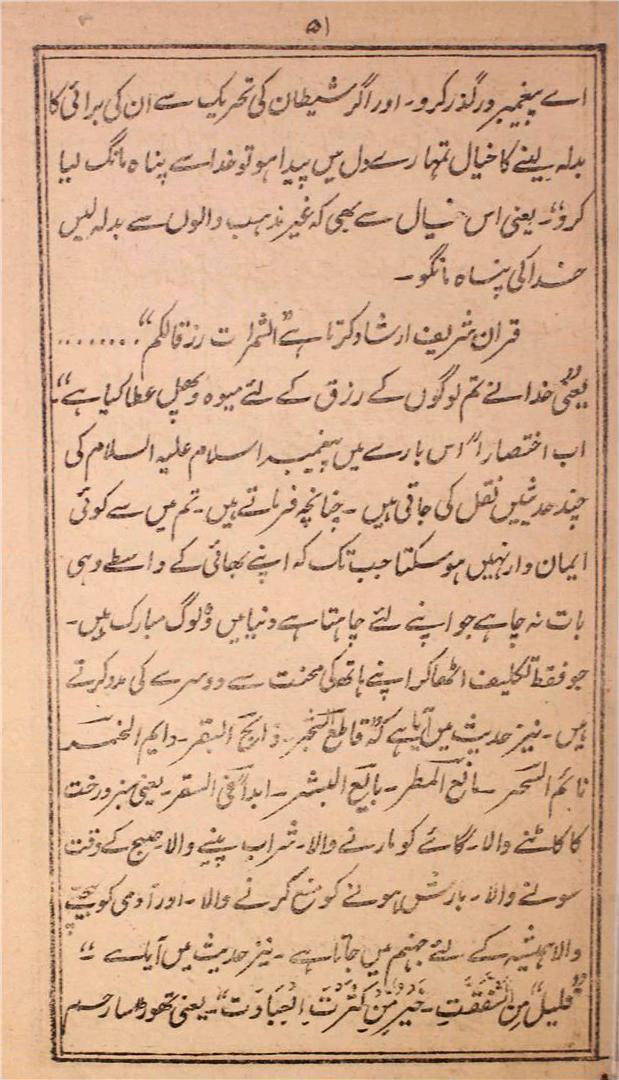 ۵۱
اے پیغمبر درگذر کرو۔ اور اگر شیطان کی تحریک سے ان کی برائی کا
بدلہ لینے کا خیال تمہارے دل میں پیدا ہو تو خدا سے پناہ مانگ لیا
کرو"۔ یعنی اس خیال سے بھی کہ غیر مذہب والوں سے بدلہ لیں
خدا کی پناہ مانگو۔
قران شریف ارشاد کرتا ہے "الثمرات رزقالکم" ........
یعنی "خدا نے تم لوگوں کے رزق کے لئے میوہ و پھل عطا کیا ہے"۔
اب اختصاراً اس بارے میں پیغمبر اسلام علیہ السلام کی
چند حدیثیں نقل کی جاتی ہیں۔ چنانچہ فرماتے ہیں۔ تم میں سے کوئی
ایمان دار نہیں ہو سکتا جب تک کہ اپنے بھائی کے واسطے وہی
بات نہ چاہے جو اپنے لئے چاہتا ہے دنیا میں وُہ لوگ مبارک ہیں۔
جو فقط تکلیف اٹھا کر اپنے ہاتھ کی محنت سے دوسرے کی مدد کرتے
ہیں۔ نیز حدیث میں آیا ہے کہ "قاطع الشجر۔ ذابح البقر۔ دایم الخمر
نائم السحر۔ مانع المطر۔ بایع البشر۔ ابداً فی السقر۔ یعنی سبز درخت
کا کاٹنے والا۔ گائے کو مارنے والا۔ شراب پینے والا۔ صبح کے وقت
سونے والا۔ بارش ہونے کو منع کرنے والا۔ اور آدمی کو بیچنے
والا ہمیشہ کے لئے جہنم میں جاتا ہے۔ نیز حدیث میں آیا ہے "
"قلیل" مِن الشفقتِ۔ خَیر" مِّن کثرَتَ الِعبَادَت"۔ یعنی تھوڑا سا رحم